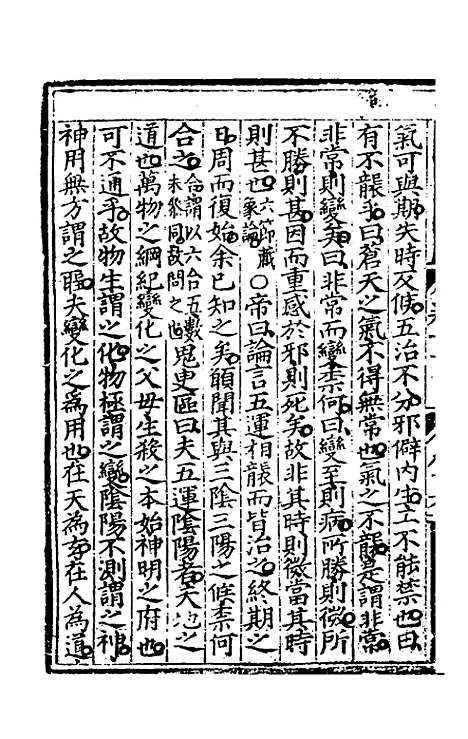 氣可與期失時反候五治不分邪僻内生工不能禁也曰
有不襲乎曰蒼天之氣不得無常也氣之不襲是謂非常
非常則變矣曰非常而變柰何曰變至則病所勝則微所
不勝則甚因而重感於邪則死矣故非其時則微當其時
則甚也六節藏象論○帝曰論言五運相襲而皆治之終期之
日周而復始余已知之矣願聞其與三陰三陽之候柰何
合之合謂以六合五數未參同故問之也鬼臾區曰夫五運陰陽者天地之
道也萬物之綱紀變化之父母生殺之本始神明之府也
可不通乎故物生謂之化物極謂之變陰陽不測謂之神
神用無方謂之聖夫變化之為用也在天為玄在人為道